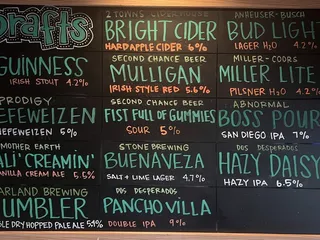 Drafts
GUINNESS
IRISH STOUT 4.2%
PRODIGY
EFEWEIZEN
HEFEWEIZEN 5%
MOTHER EARTH
ALI' CREAMIN'
VANILLA CREAM ALE 5.5%
ARLAND BREWING
UMBLER
BLE DRY HOPPED PALE ALE 5.4%
2 TOWNS CIDERHOUSE
BRIGHT CIDER
HARD APPLE CIDER 6%
SECOND CHANCE BEER
MULLIGAN
IRISH STYLE RED 5.6%
SECOND CHANCE BEER
FIST FULL OF GUMMIES
SOUR 5%
STONE BREWING
BUENAVEZA
SALT + LIME LAGER 4.7%
DOS DESPERADOS
PANCHO VILLA
DOUBLE IPA 9%
ANHEUSER-BUSCH
BUD LIGHT
LAGER H2O 4.2%
MILLER-COORS
MILLER LITE
PILSNER H2O 4.2%
ABNORMAL
BOSS POUR
SAN DIEGO IPA 7%
DOS DESPERADOS
HAZY DAISY
HAZY IPA 6.5%